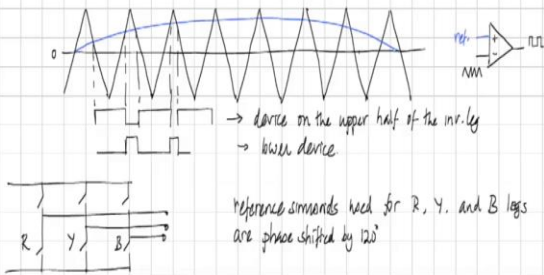 ref.
0
+
-
→ device on the upper half of the inv. leg
→ lower device
reference sinusoids used for R, Y, and B legs
are phase shifted by 120°
R Y B